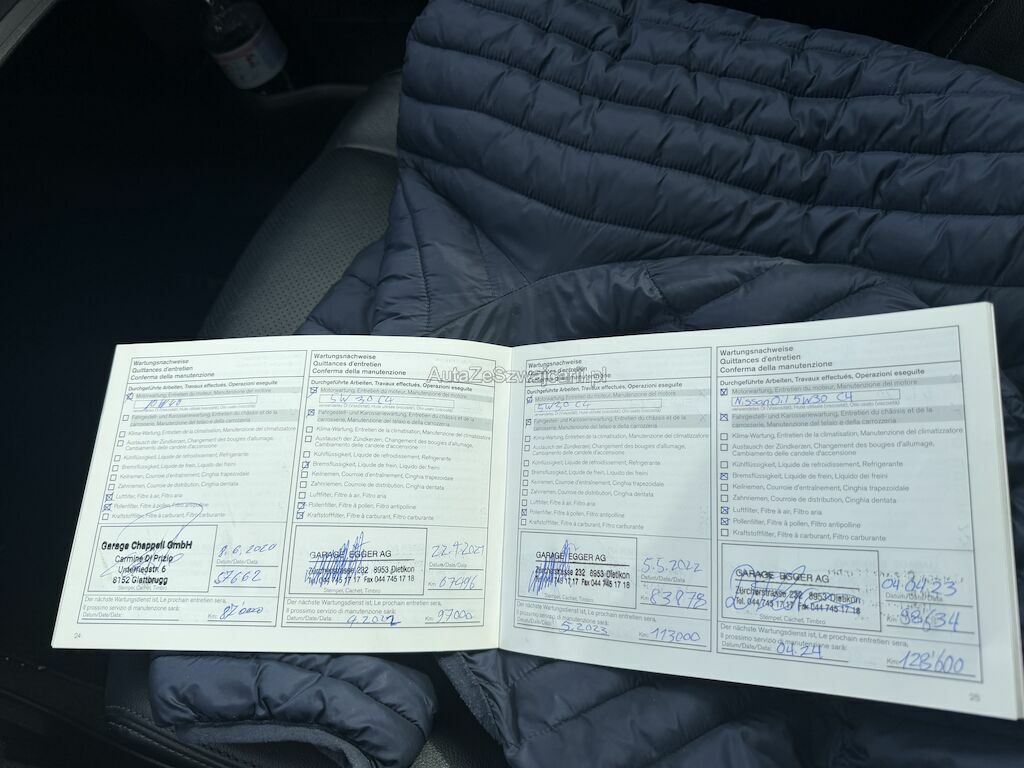 AutaZeSzwajcarii.pl
Wartungsnachweise
Quittances d'entretien
Conferma della manutenzione
Durchgeführte Arbeiten, Travaux effectués, Operazioni eseguite
Motorwartung, Entretien du moteur, Manutenzione del motore
Fahrgestell- und Karosseriewartung, Entretien du châssis et de la
carrosserie, Manutenzione del telaio e della carrozzeria
Klima-Wartung, Entretien de la climatisation, Manutenzione del climatizzatore
Austausch der Zündkerzen, Changement des bougies d'allumage,
Cambiamento delle candele d'accensione
Kühlflüssigkeit, Liquide de refroidissement, Refrigerante
Bremsflüssigkeit, Liquide de frein, Liquido dei freini
Keilriemen, Courroie d'entraînement, Cinghia trapezoidale
Zahnriemen, Courroie de distribution, Cinghia dentata
Luftfilter, Filtre à air, Filtro aria
Pollenfilter, Filtre à pollen, Filtro antipolline
Kraftstofffilter, Filtre à carburant, Filtro carburante
Garage Chappell GmbH
Carmine Di Prizio
Unterriedstr. 6
8152 Glattbrugg
Stempel, Cachet, Timbro
8.6.2020
Datum/Date/Data
Km: 57662
Der nächste Wartungsdienst ist, Le prochain entretien sera,
Il prossimo servizio di manutenzione sarà:
Datum/Date/Data:
Km: 87000
24
Wartungsnachweise
Quittances d'entretien
Conferma della manutenzione
Durchgeführte Arbeiten, Travaux effectués, Operazioni eseguite
Motorwartung, Entretien du moteur, Manutenzione del motore
5W30 C4
Fahrgestell- und Karosseriewartung, Entretien du châssis et de la
carrosserie, Manutenzione del telaio e della carrozzeria
Klima-Wartung, Entretien de la climatisation, Manutenzione del climatizzatore
Austausch der Zündkerzen, Changement des bougies d'allumage,
Cambiamento delle candele d'accensione
Kühlflüssigkeit, Liquide de refroidissement, Refrigerante
Bremsflüssigkeit, Liquide de frein, Liquido dei freini
Keilriemen, Courroie d'entraînement, Cinghia trapezoidale
Zahnriemen, Courroie de distribution, Cinghia dentata
Luftfilter, Filtre à air, Filtro aria
Pollenfilter, Filtre à pollen, Filtro antipolline
Kraftstofffilter, Filtre à carburant, Filtro carburante
GARAGE EGGER AG
Zürcherstrasse 232 8953 Dietikon
Tel. 044 745 17 17 Fax 044 745 17 18
Stempel, Cachet, Timbro
22.4.2021
Datum/Date/Data
Km: 67496
Der nächste Wartungsdienst ist, Le prochain entretien sera,
Il prossimo servizio di manutenzione sarà:
Datum/Date/Data:
Km: 97000
Wartungsnachweise
Quittances d'entretien
Conferma della manutenzione
Durchgeführte Arbeiten, Travaux effectués, Operazioni eseguite
Motorwartung, Entretien du moteur, Manutenzione del motore
5W30 C4
Fahrgestell- und Karosseriewartung, Entretien du châssis et de la
carrosserie, Manutenzione del telaio e della carrozzeria
Klima-Wartung, Entretien de la climatisation, Manutenzione del climatizzatore
Austausch der Zündkerzen, Changement des bougies d'allumage,
Cambiamento delle candele d'accensione
Kühlflüssigkeit, Liquide de refroidissement, Refrigerante
Bremsflüssigkeit, Liquide de frein, Liquido dei freini
Keilriemen, Courroie d'entraînement, Cinghia trapezoidale
Zahnriemen, Courroie de distribution, Cinghia dentata
Luftfilter, Filtre à air, Filtro aria
Pollenfilter, Filtre à pollen, Filtro antipolline
Kraftstofffilter, Filtre à carburant, Filtro carburante
GARAGE EGGER AG
Zürcherstrasse 232 8953 Dietikon
Tel. 044 745 17 17 Fax 044 745 17 18
Stempel, Cachet, Timbro
5.5.2022
Datum/Date/Data
Km: 83978
Der nächste Wartungsdienst ist, Le prochain entretien sera,
Il prossimo servizio di manutenzione sarà:
Datum/Date/Data: 5.2023
Km: 113000
Wartungsnachweise
Quittances d'entretien
Conferma della manutenzione
Durchgeführte Arbeiten, Travaux effectués, Operazioni eseguite
Motorwartung, Entretien du moteur, Manutenzione del motore
Nissan Oil 5W30 C4
Fahrgestell- und Karosseriewartung, Entretien du châssis et de la
carrosserie, Manutenzione del telaio e della carrozzeria
Klima-Wartung, Entretien de la climatisation, Manutenzione del climatizzatore
Austausch der Zündkerzen, Changement des bougies d'allumage,
Cambiamento delle candele d'accensione
Kühlflüssigkeit, Liquide de refroidissement, Refrigerante
Bremsflüssigkeit, Liquide de frein, Liquido dei freini
Keilriemen, Courroie d'entraînement, Cinghia trapezoidale
Zahnriemen, Courroie de distribution, Cinghia dentata
Luftfilter, Filtre à air, Filtro aria
Pollenfilter, Filtre à pollen, Filtro antipolline
Kraftstofffilter, Filtre à carburant, Filtro carburante
GARAGE EGGER AG
Zürcherstrasse 232 8953 Dietikon
Tel. 044 745 17 17 Fax 044 745 17 18
Stempel, Cachet, Timbro
04.04.23
Datum/Date/Data
Km: 98'634
Der nächste Wartungsdienst ist, Le prochain entretien sera,
Il prossimo servizio di manutenzione sarà:
Datum/Date/Data: 04.24
Km: 128'600
25